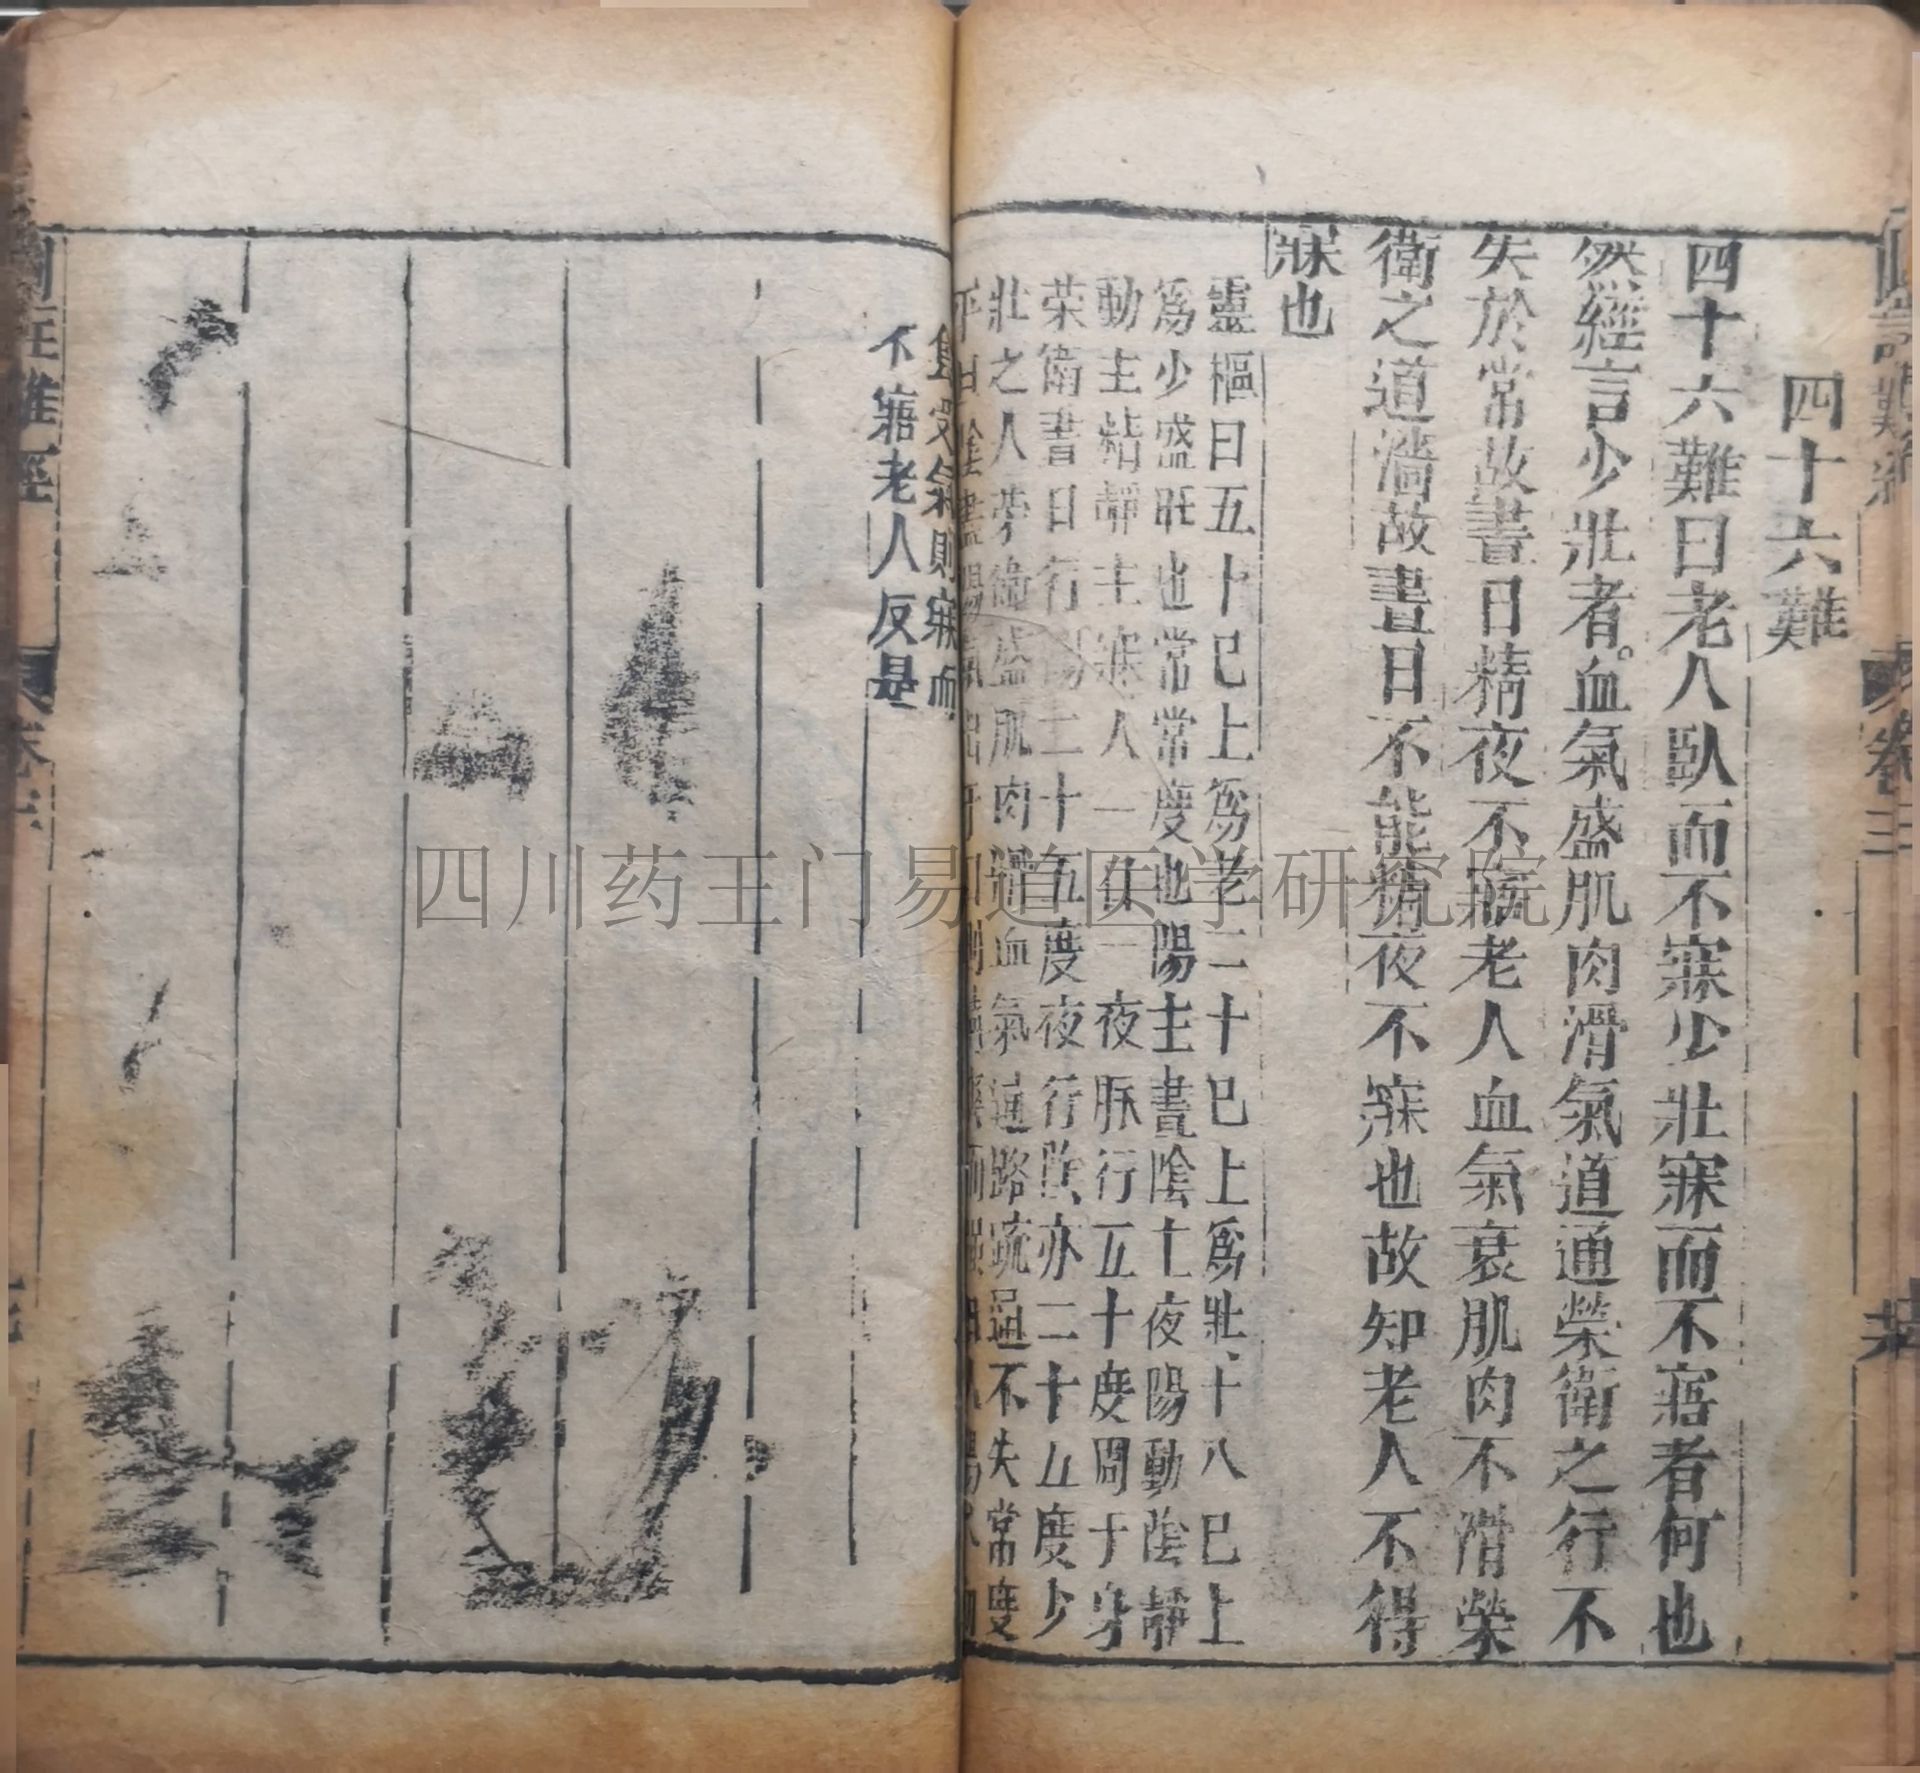 四十六難
四十六難曰老人臥而不寐少壯寐而不寤者何也
然經言少壯者血氣盛肌肉滑氣道通榮衛之行不
失於常故晝日精夜不寤老人血氣衰肌肉不滑榮
衛之道濇故晝日不能精夜不寐也故知老人不得
寐也
靈樞曰五十已上為老二十已上為壯十八已上
為少盛旺也常常度也陽主晝陰主夜陽動陰靜
動主精靜主寐人一日一夜脉行五十度周于身
荣衛晝日行陽二十五度夜行陰亦二十五度少
壯之人荣衛盛肌肉滑血氣通路疏通不失常度
受氣則寐而
不寤老人反是
卷三
卷三
四川药王门易道医学研究院